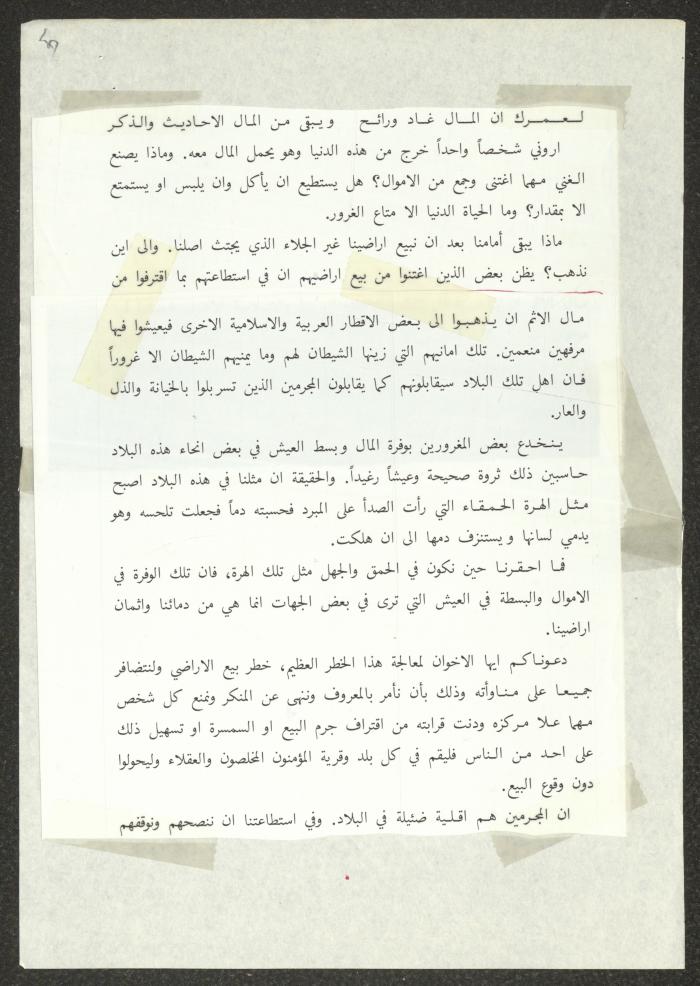 لـعـمـرك ان المـال غـاد ورائـح ويـبقى مـن المـال الاحـاديـث والـذكـر
اروني شـخـصاً واحداً خرج من هذه الدنيا وهو يحمل المال معه. وماذا يصنع
الـغني مـهما اغتنى وجمع من الاموال؟ هل يستطيع ان يأكل وان يلبس او يستمتع
الا بمقدار؟ وما الحياة الدنيا الا متاع الغرور.
ماذا يبقى أمامنا بعد ان نبيع اراضينا غير الجلاء الذي يجتث اصلنا. والى اين
نذهب؟ يظن بعض الذين اغتنوا من بيع اراضيهم ان في استطاعتهم بما اقترفوا من
مـال الاثم ان يـذهـبـوا الى بـعـض الاقطار العربية والاسلامية الاخرى فيعيشوا فيها
مرفهين منعمين. تلك امانيهم التي زينها الشيطان لهم وما يمنيهم الشيطان الا غروراً
فـان اهل تلك البلاد سيقابلونهم كما يقابلون المجرمين الذين تسربلوا بالخيانة والذل
والعار.
يـنـخـدع بعض المغرورين بوفرة المال وبسط العيش في بعض انحاء هذه البلاد
حـاسبين ذلك ثروة صحيحة وعيشاً رغيداً. والحقيقة ان مثلنا في هذه البلاد اصبح
مـثـل الهرة الحـمـقـاء التي رأت الصدأ على المبرد فحسبته دماً فجعلت تلحسه وهو
يدمي لسانها ويستنزف دمها الى ان هلكت.
فما احـقـرنـا حين نكون في الحمق والجهل مثل تلك الهرة، فان تلك الوفرة في
الاموال والبسطة في العيش التي ترى في بعض الجهات انما هي من دمائنا واثمان
اراضينا.
دعـونـاكـم ايها الاخوان لمعالجة هذا الخطر العظيم، خطر بيع الاراضي ولنتضافر
جمـيـعـا على مـنـاوأته وذلك بأن نأمر بالمعروف وننهى عن المنكر ونمنع كل شخص
مـهـما عـلا مـركـزه ودنت قرابته من اقتراف جرم البيع او السمسرة او تسهيل ذلك
على احـد مـن الـنـاس فليقم في كل بلد وقرية المؤمنون المخلصون والعقلاء وليحولوا
دون وقوع البيع.
ان المجـرمين هـم اقـلـية ضئيلة في البلاد. وفي استطاعتنا ان ننصحهم ونوقفهم